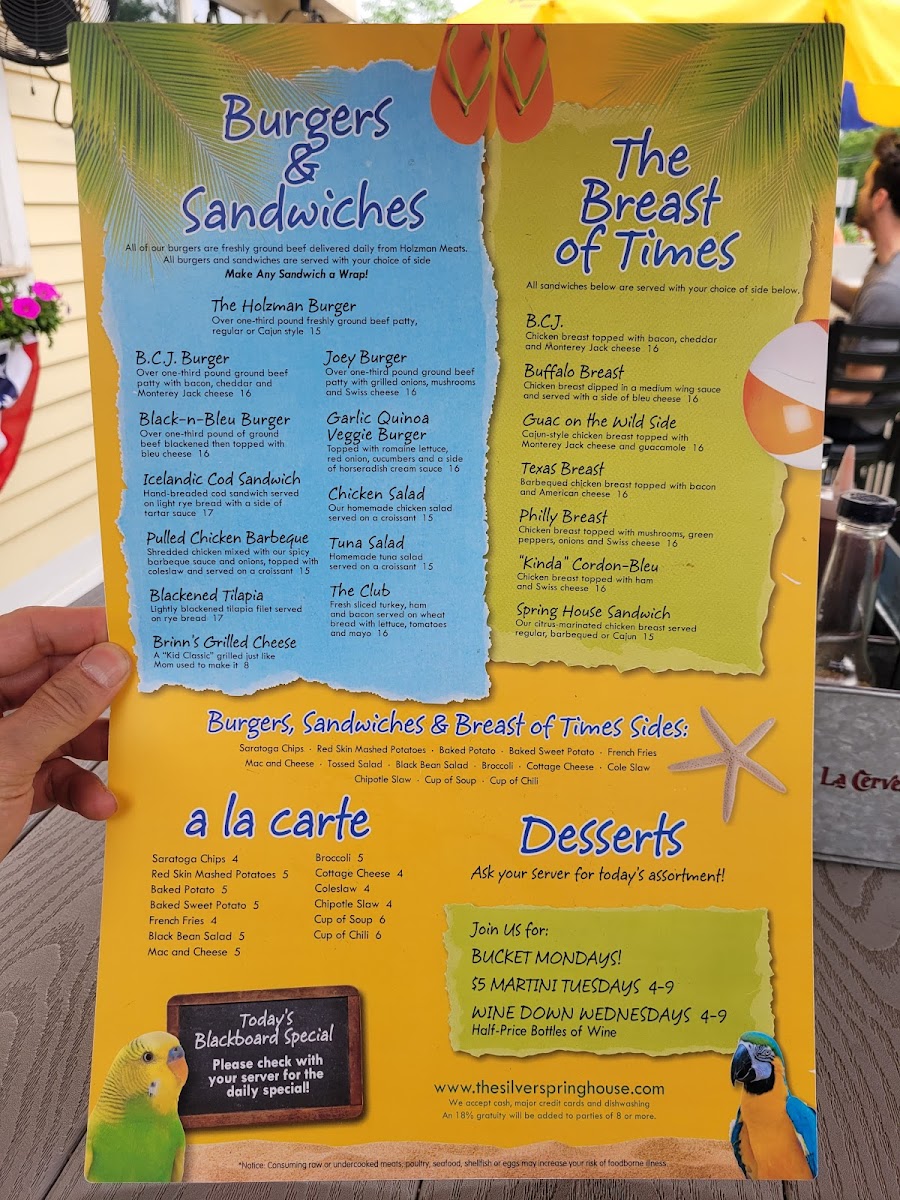 Burgers
&
Sandwiches
All of our burgers are freshly ground beef delivered daily from Holzman Meats.
All burgers and sandwiches are served with your choice of side
Make Any Sandwich a Wrap!
The Holzman Burger
Over one-third pound freshly ground beef patty,
regular or Cajun style 15
B.C.J. Burger
Over one-third pound ground beef
patty with bacon, cheddar and
Monterey Jack cheese 16
Black-n-Bleu Burger
Over one-third pound of ground
beef blackened then topped with
bleu cheese 16
Icelandic Cod Sandwich
Hand-breaded cod sandwich served
on light rye bread with a side of
tartar sauce 17
Pulled Chicken Barbeque
Shredded chicken mixed with our spicy
barbeque sauce and onions, topped with
coleslaw and served on a croissant 15
Blackened Tilapia
Lightly blackened tilapia filet served
on rye bread 17
Brinn's Grilled Cheese
A "Kid Classic" grilled just like
Mom used to make it 8
Joey Burger
Over one-third pound ground beef
patty with grilled onions, mushrooms
and Swiss cheese 16
Garlic Quinoa
Veggie Burger
Topped with romaine lettuce,
red onion, cucumbers and a side
of horseradish cream sauce 16
Chicken Salad
Our homemade chicken salad
served on a croissant 15
Tuna Salad
Homemade tuna salad
served on a croissant 15
The Club
Fresh sliced turkey, ham
and bacon served on wheat
bread with lettuce, tomatoes
and mayo 16
The
Breast
of Times
All sandwiches below are served with your choice of side below.
B.C.J.
Chicken breast topped with bacon, cheddar
and Monterey Jack cheese 16
Buffalo Breast
Chicken breast dipped in a medium wing sauce
and served with a side of bleu cheese 16
Guac on the Wild Side
Cajun-style chicken breast topped with
Monterey Jack cheese and guacamole 16
Texas Breast
Barbequed chicken breast topped with bacon
and American cheese 16
Philly Breast
Chicken breast topped with mushrooms, green
peppers, onions and Swiss cheese 16
"Kinda" Cordon-Bleu
Chicken breast topped with ham
and Swiss cheese 16
Spring House Sandwich
Our citrus-marinated chicken breast served
regular, barbequed or Cajun 15
Burgers, Sandwiches & Breast of Times Sides:
Saratoga Chips · Red Skin Mashed Potatoes · Baked Potato · Baked Sweet Potato · French Fries
Mac and Cheese · Tossed Salad · Black Bean Salad · Broccoli · Cottage Cheese · Cole Slaw
Chipotle Slaw · Cup of Soup · Cup of Chili
a la carte
Saratoga Chips 4
Red Skin Mashed Potatoes 5
Baked Potato 5
Baked Sweet Potato 5
French Fries 4
Black Bean Salad 5
Mac and Cheese 5
Broccoli 5
Cottage Cheese 4
Coleslaw 4
Chipotle Slaw 4
Cup of Soup 6
Cup of Chili 6
Desserts
Ask your server for today's assortment!
Join Us for:
BUCKET MONDAYS!
$5 MARTINI TUESDAYS 4-9
WINE DOWN WEDNESDAYS 4-9
Half-Price Bottles of Wine
Today's
Blackboard Special
Please check with
your server for the
daily special!
www.thesilverspringhouse.com
We accept cash, major credit cards and dishwashing
An 18% gratuity will be added to parties of 8 or more.
*Notice: Consuming raw or undercooked meats, poultry, seafood, shellfish or eggs may increase your risk of foodborne illness
La Cerve